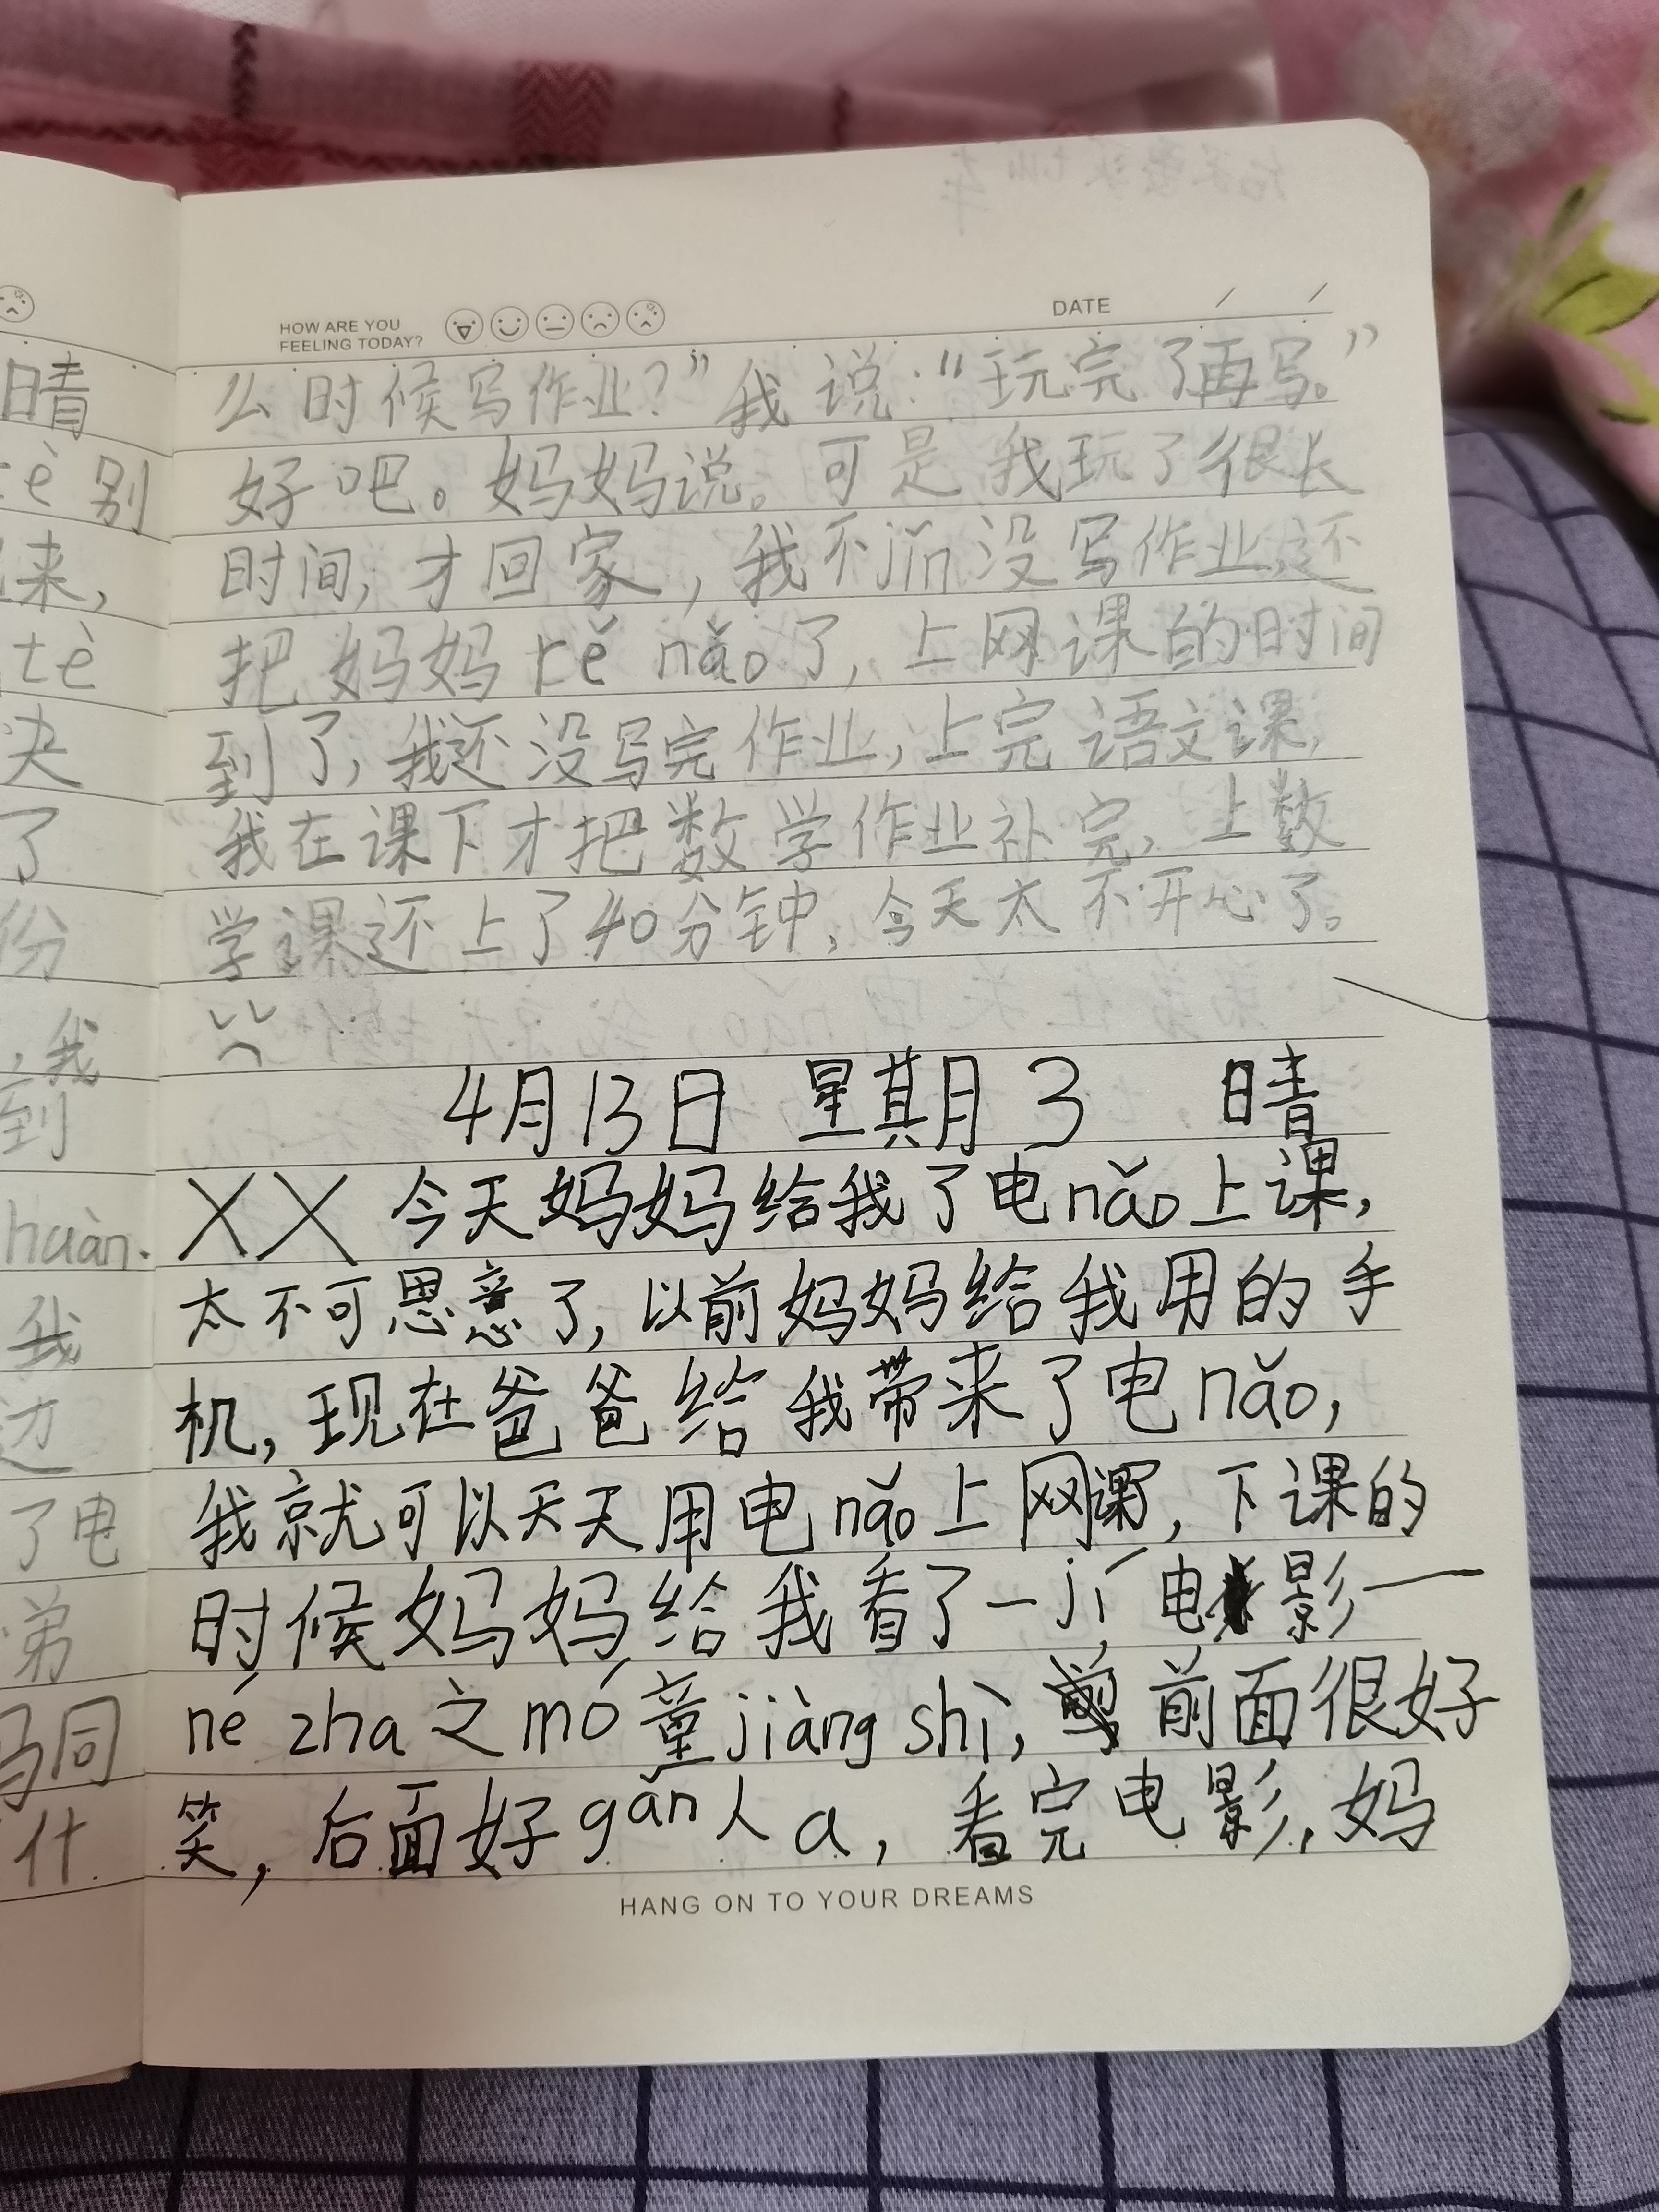 HOW ARE YOU
FEELING TODAY?
DATE / /
么时候写作业？”我说：“玩完了再写。”
好吧。妈妈说。可是我玩了很长
时间，才回家，我不jǐn没写作业，还
把妈妈rě nǎo了，上网课的时间
到了，我还没写完作业，上完语文课，
我在课下才把数学作业补完，上数
学课还上了40分钟，今天太不开心了。
4月13日 星期3 晴
XX 今天妈妈给我了电nǎo上课，
太不可思意了，以前妈妈给我用的手
机，现在爸爸给我带来了电nǎo，
我就可以天天用电nǎo上网课，下课的
时候妈妈给我看了一jí电影一
né zha之mó童jiàng shì，前面很好
笑，后面好gǎn人a，看完电影，妈
HANG ON TO YOUR DREAMS
晴
tè别
来，
tè
决
了
份
，我
到
huàn.
我
边
了电
弟
妈同
什